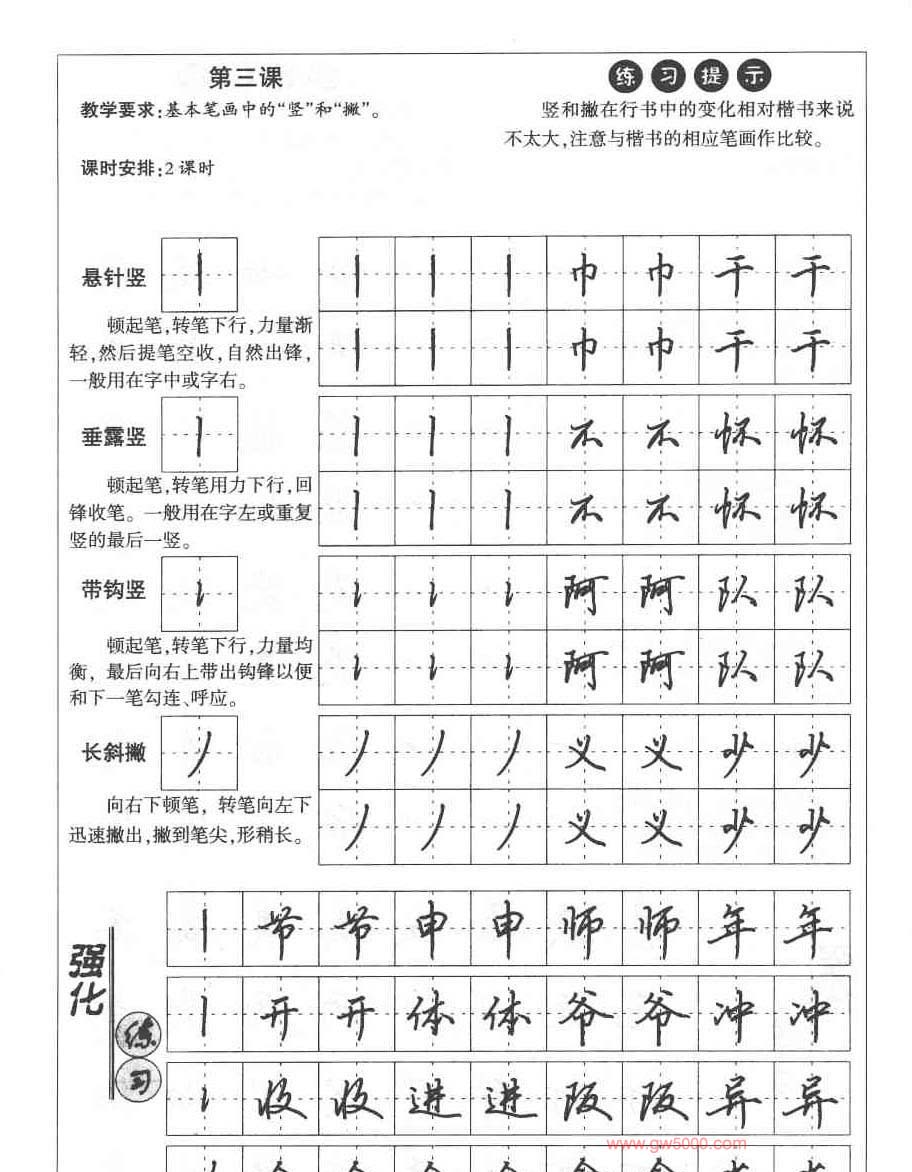 第三课
教学要求:基本笔画中的“竖”和“撇”。
课时安排:2课时
练习提示
竖和撇在行书中的变化相对楷书来说
不太大,注意与楷书的相应笔画作比较。
悬针竖
顿起笔,转笔下行,力量渐
轻,然后提笔空收,自然出锋,
一般用在字中或字右。
丨 丨 丨 丨 巾 巾 干 干
丨 丨 丨 巾 巾 干 干
垂露竖
顿起笔,转笔用力下行,回
锋收笔。一般用在字左或重复
竖的最后一竖。
丨 丨 丨 丨 不 不 怀 怀
丨 丨 丨 不 不 怀 怀
带钩竖
顿起笔,转笔下行,力量均
衡,最后向右上带出钩锋以便
和下一笔勾连、呼应。
阿 阿 队 队
阿 阿 队 队
长斜撇
向右下顿笔,转笔向左下
迅速撇出,撇到笔尖,形稍长。
丿 丿 丿 丿 义 义 少 少
丿 丿 丿 义 义 少 少
强化
练习
丨 申 申 师 师 年 年
丨 开 开 体 体 爷 爷 冲 冲
收 收 进 进 阪 阪 异 异
www.gw5000.com